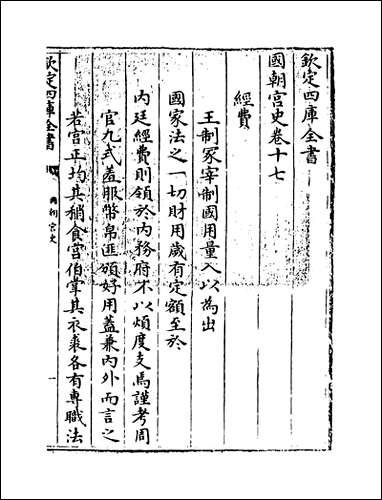 欽定四庫全書
國朝宮史卷十七
經費
王制冢宰制國用量入以為出
國家法之一切財用歲有定額至於
內廷經費則領於內務府不以煩度支焉謹考周
官九式羞服幣帛匪頒好用蓋兼內外而言之
若宮正均其稍食宮伯掌其衣裘各有專職法
欽定四庫全書
國朝宮史
一